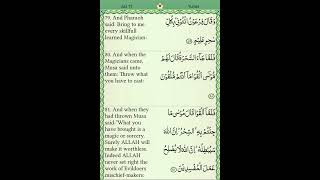 79. And Pharaoh
said: Bring to me
every skillful
learned Magician:
وَقَالَ فِرْعَوْنُ ائْتُوْنِيْ بِكُلِّ
سٰحِرٍ عَلِيْمٍ
80. And when the
Magicians came,
Musa said unto
them: Throw what
you have to cast:
فَلَمَّا جَآءَ السَّحَرَةُ قَالَ لَهُمْ
مُّوْسٰٓى اَلْقُوْا مَآ اَنْتُمْ مُّلْقُوْنَ
81. And when they
had thrown Musa
said "What you
have brought is a
magic or sorcery.
Surely ALLAH will
make it worthless.
Indeed ALLAH
never set right the
work of Evildoers
mischief-makers:
فَلَمَّآ اَلْقَوْا قَالَ مُوْسٰى مَا
جِئْتُمْ بِهِ السِّحْرُ اِنَّ اللّٰهَ
سَيُبْطِلُهٗ اِنَّ اللّٰهَ لَا يُصْلِحُ
عَمَلَ الْمُفْسِدِيْنَ